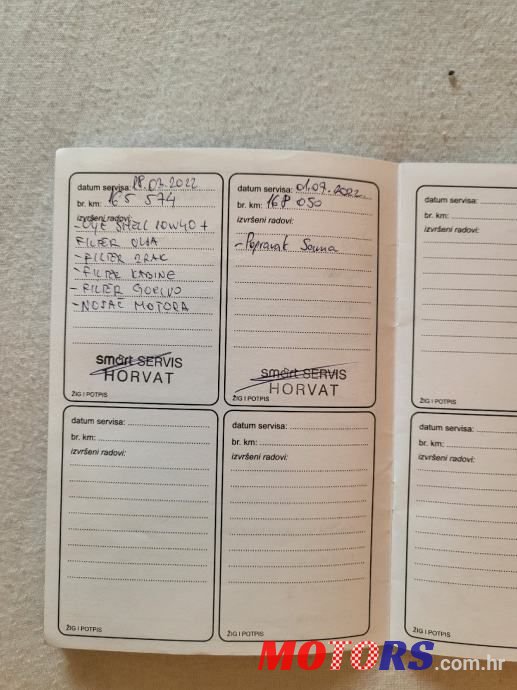 datum servisa: 18.07.2022
br. km: 165 574
izvršeni radovi:
-ULJE SHELL 10W40 +
FILTER ULJA
-FILTER ZRAC
-FILTER KABINE
-FILTER GORIVO
-NOSAČ MOTORA
smart SERVIS
HORVAT
ŽIG I POTPIS
datum servisa: 01.09.2022.
br. km: 168 050
izvršeni radovi:
-Popravak
smart SERVIS
HORVAT
ŽIG I POTPIS
datum servisa:
br. km:
izvršeni radovi:
ŽIG I POTPIS
datum servisa:
br. km:
izvršeni radovi:
ŽIG I POTPIS
datum
br. km:
izvršeni
ŽIG I POTPIS
datum
br. km:
izvršeni
ŽIG I POTPIS
MOTORS.com.hr